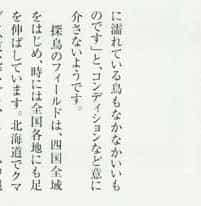 に濡れている鳥もなかなかいいも
のです」と、コンディションなど意に
介さないようです。
　探鳥のフィールドは、四国全域
をはじめ、時には全国各地にも足
を伸ばしています。北海道でクマ